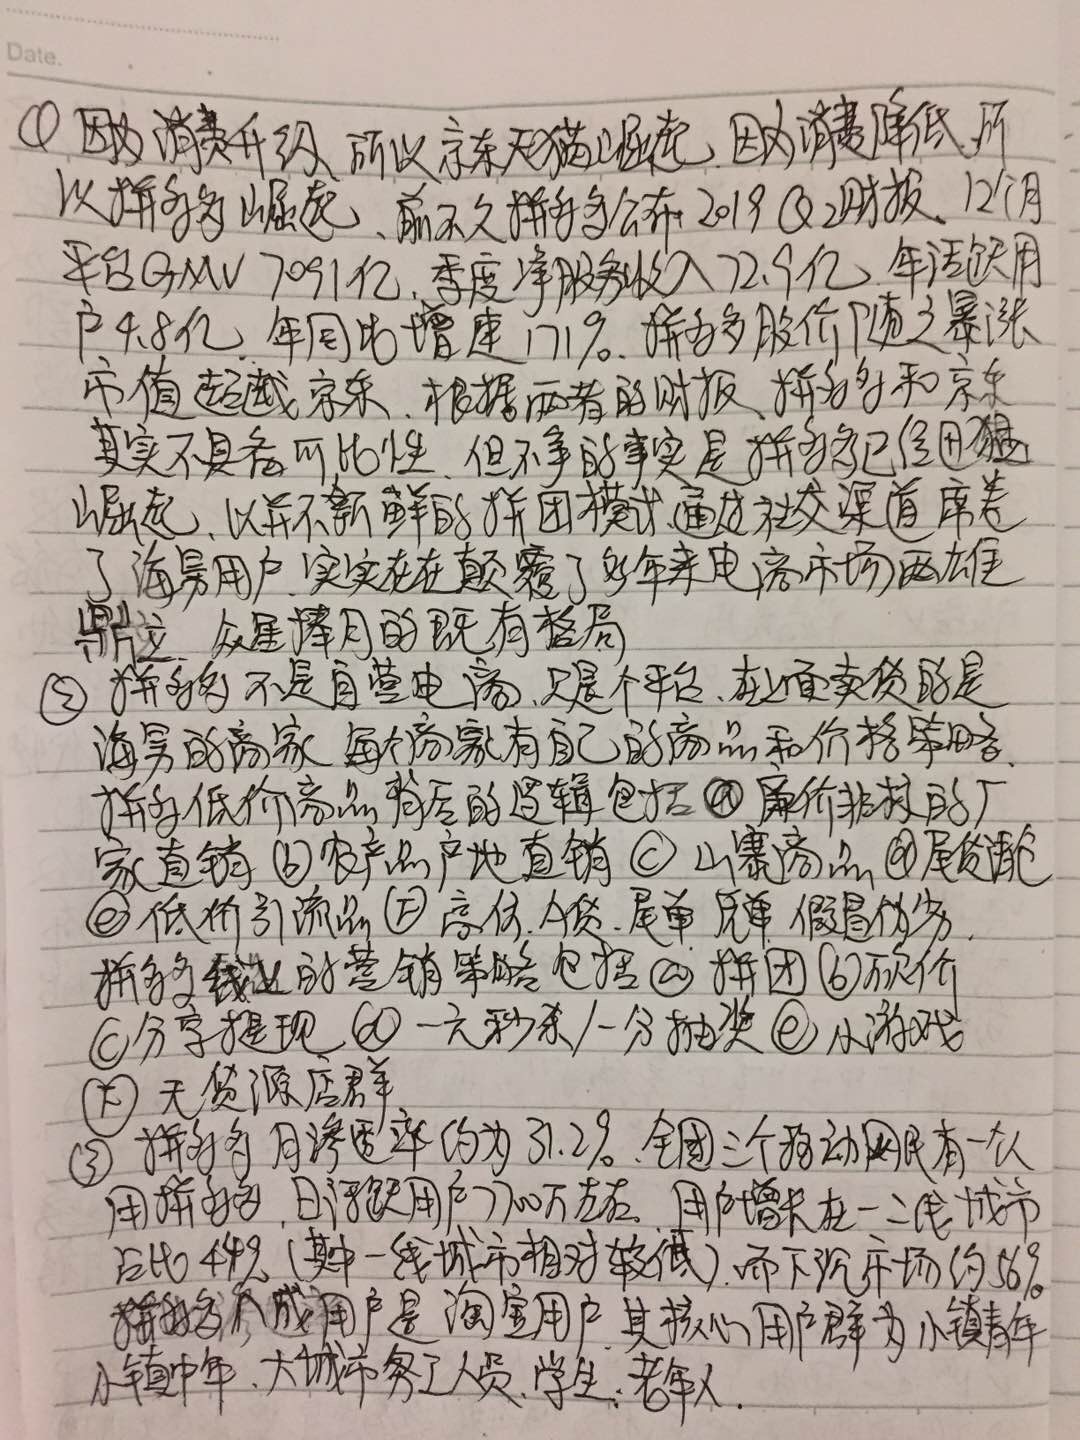 Date.
① 因为消费升级,所以京东天猫崛起,因为消费降低,所
以拼多多崛起、前不久拼多多公布2019 Q2财报、12个月
平台GMV 7091亿,季度净服务收入72.9亿,年活跃用
户4.8亿,年同比增速171%、拼多多股价随之暴涨
市值超越京东、根据两者的财报、拼多多和京东
其实不具备可比性,但不争的事实是拼多多已经迅猛
崛起、以并不新鲜的拼团模式,通过社交渠道席卷
了海量用户,实实在在颠覆了多年来电商市场两雄
鼎立,众星捧月的既有格局
② 拼多多不是自营电商,只是个平台、在上面卖货的是
海量的商家,每个商家有自己的商品和价格策略、
拼多低价商品背后的逻辑包括 ⓐ 廉价非标的厂
家直销 ⓑ 农产品产地直销 ⓒ 山寨商品 ⓓ 尾货清仓
ⓔ 低价引流品 ⓕ 高仿、A货、尾单,原单,假冒伪劣、
拼多多线上的营销策略包括 ⓐ 拼团 ⓑ 砍价
ⓒ 分享提现 ⓓ 一元秒杀/一分抽奖 ⓔ 小游戏
ⓕ 无货源店群
③ 拼多多月渗透率约为31.2%、全国三个移动网民有一个人
用拼多多,日活跃用户7700万左右、用户增长在一二线城市
占比44%(其中一线城市相对较低)、而下沉市场约56%
拼多多八成用户是淘宝用户,其核心用户群为小镇青年
小镇中年、大城市务工人员、学生、老年人.